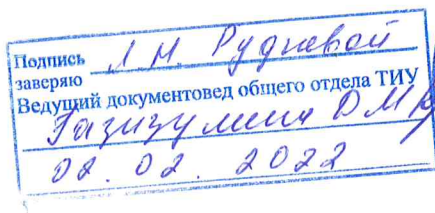 Подпись Л.Н. Рудневой
заверяю
Ведущий документовед общего отдела ТИУ
02.02.2022